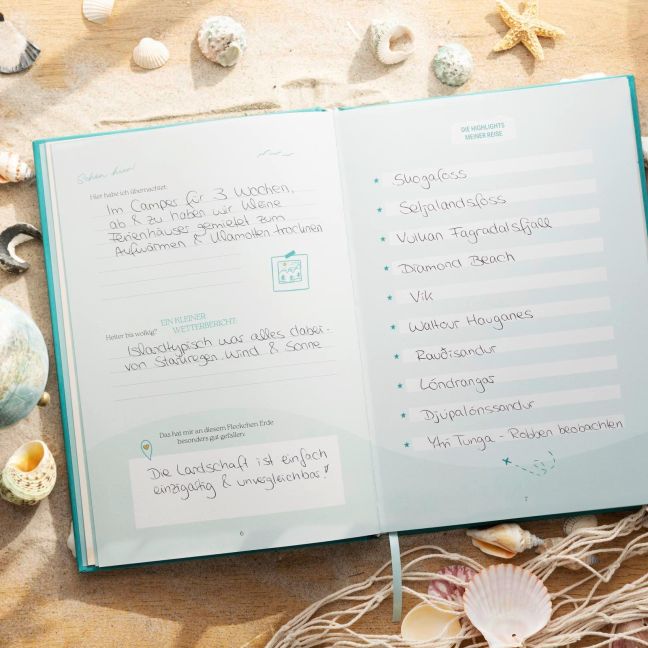 Schon hier!
Hier habe ich übernachtet:
Im Camper für 3 Wochen,
ab & zu haben wir kleine
Ferienhäuser gemietet zum
Aufwärmen & Klamotten trocknen
EIN KLEINER
WETTERBERICHT:
Heiter bis wolkig?
Islandtypisch war alles dabei -
von Starkregen, Wind & Sonne
Das hat mir an diesem Fleckchen Erde
besonders gut gefallen:
Die Landschaft ist einfach
einzigartig & unvergleichbar!
6
DIE HIGHLIGHTS
MEINER REISE
Skogafoss
Seljalandsfoss
Vulkan Fagradalsfjall
Diamond Beach
Vik
Waltour Hauganes
Rauðisandur
Lóndrangar
Djúpalónssandur
Ytri Tunga - Robben beobachten
7